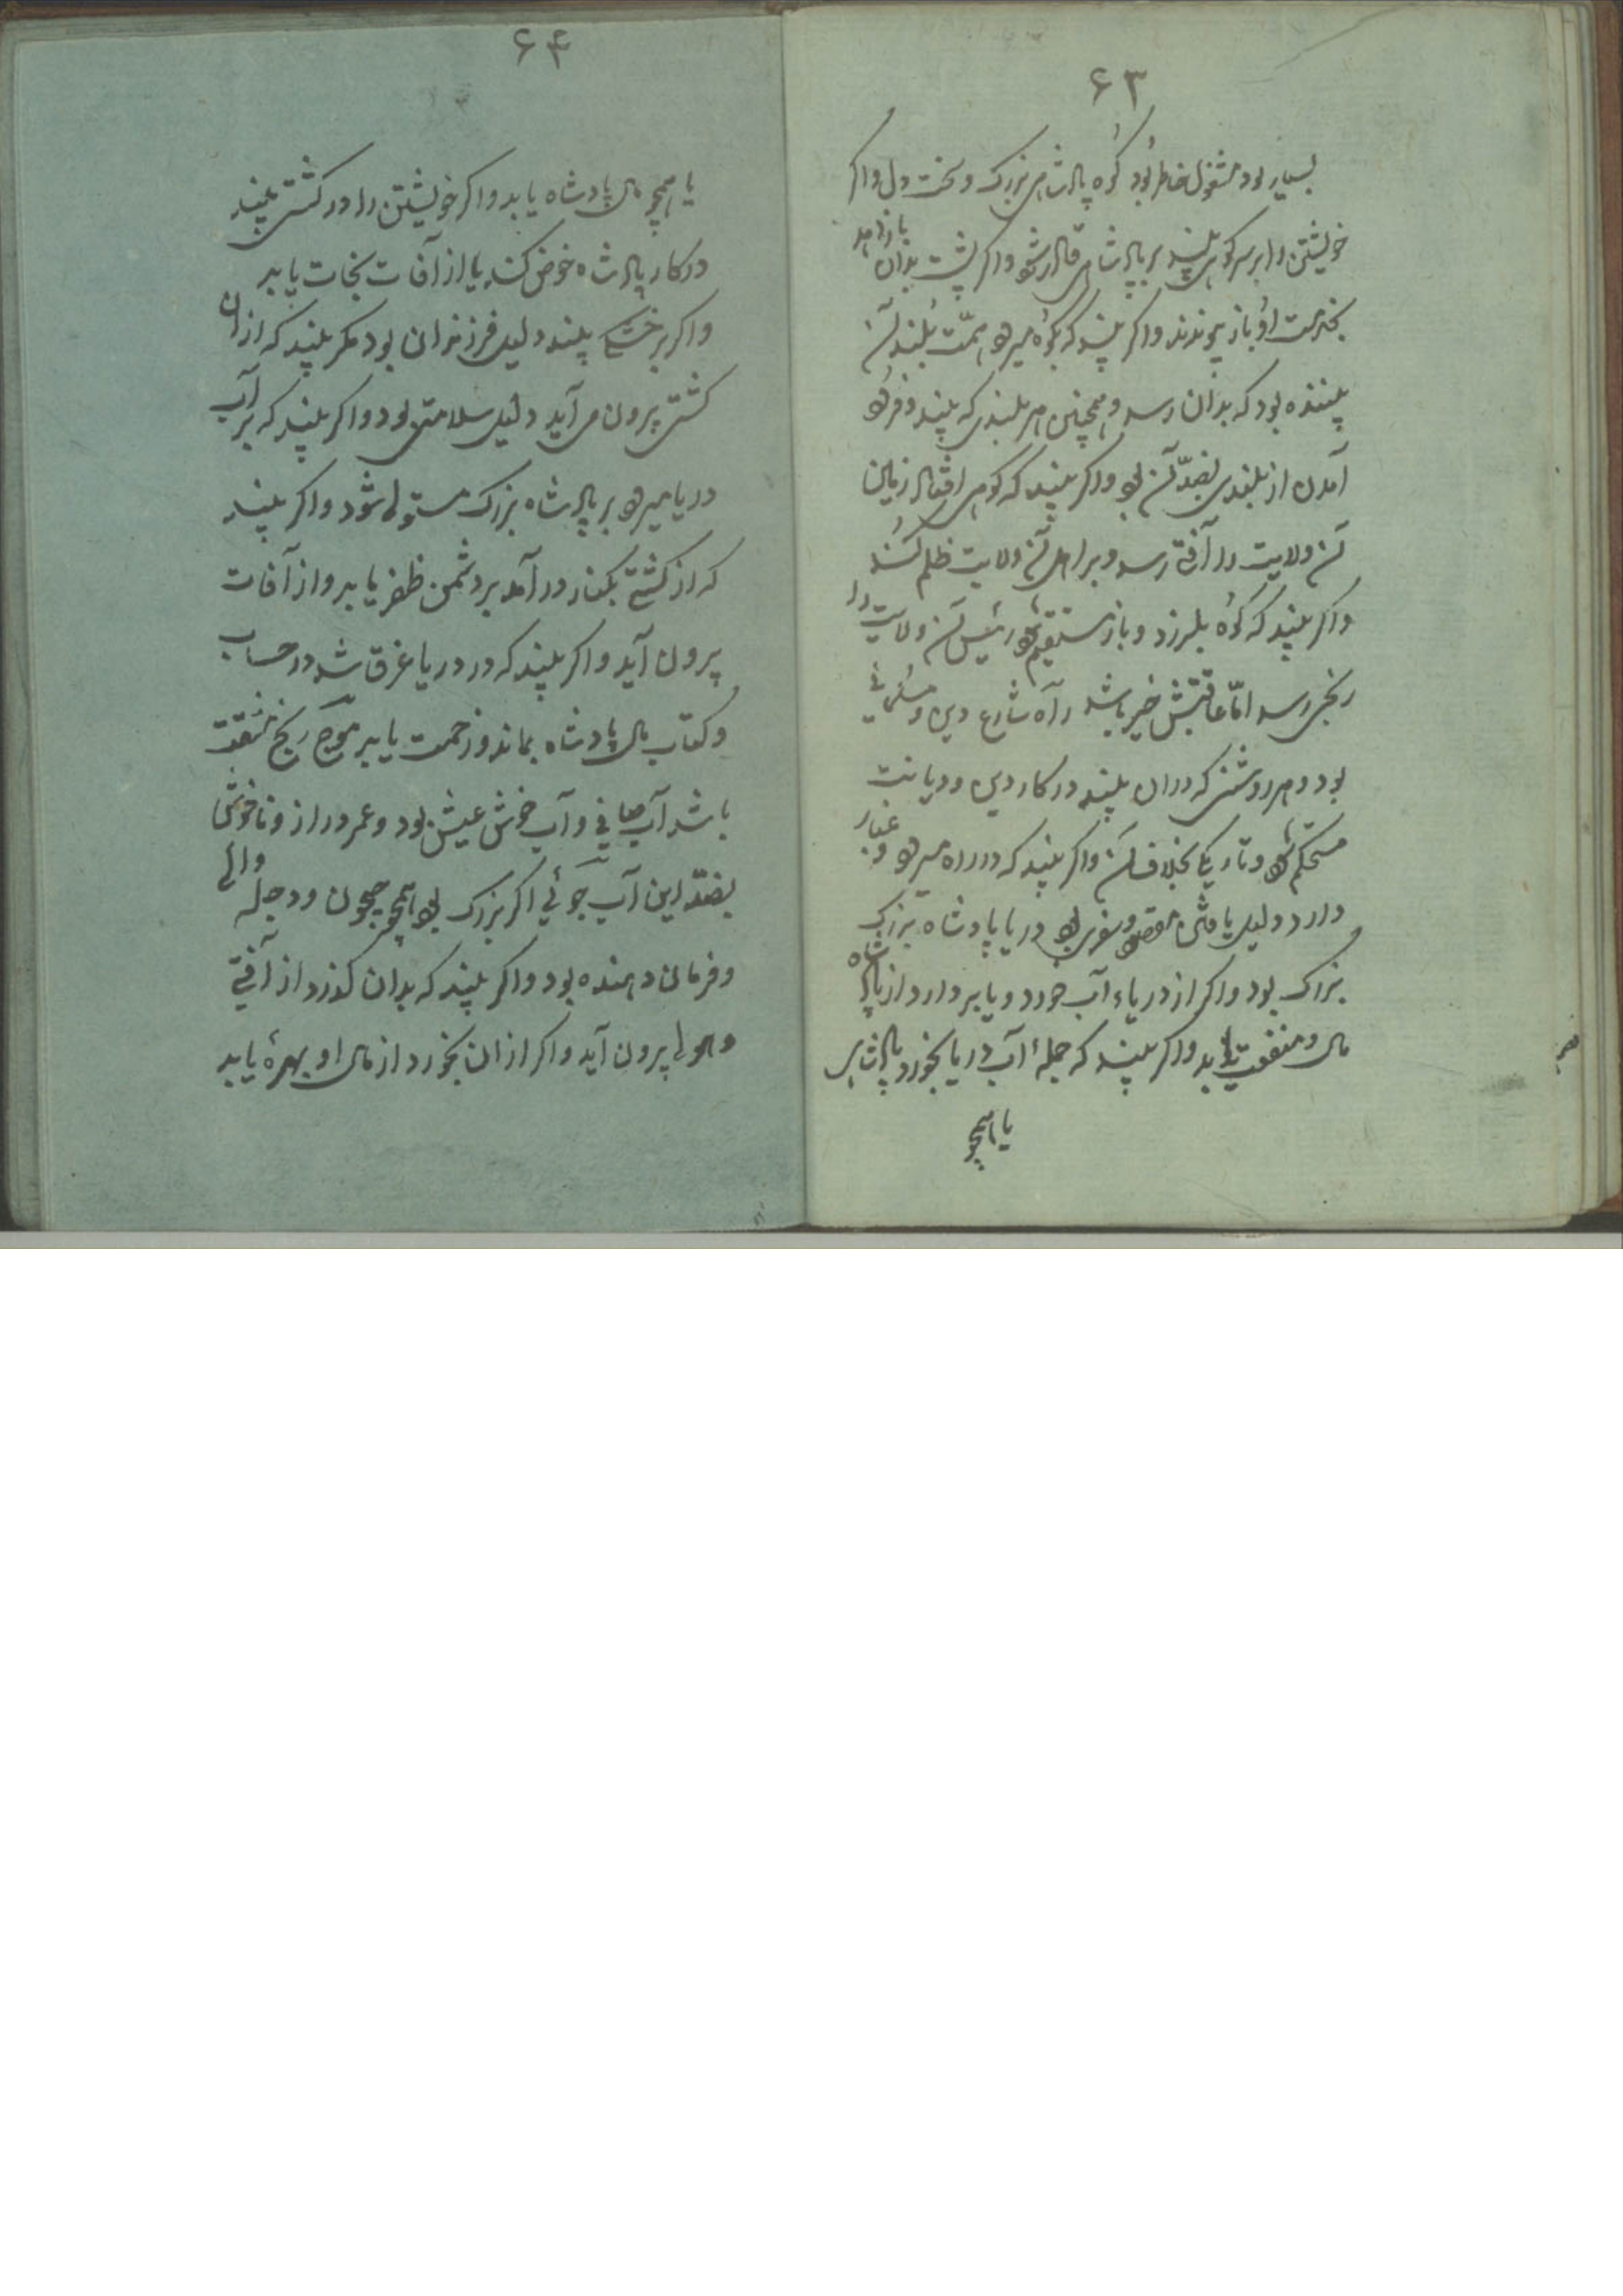 ۶۳
بسیار بود مشغول خاطر بود کوه پادشاهی بزرک و سخت دل واکر
خویشتن را بر سر کوهی بیند بر پادشاهی قادر شود واکر پشت بدان باز دهد
بخدمت او باز پیوندد واکر بیند که بکوه میرود همّت بلند آن
بیننده بود که بدان رسد و همچنین هر بلندی که بیند و فرود
آمدن از بلندی بضدّ آن بود واکر بیند که کوهی افتاد زمین
آن ولایت را آفتی رسد و بر اهل آن ولایت ظلم کند
واکر بیند که کوه بلرزد و باز مستقیم شود رئیس آن ولایت را
رنجی رسد امّا عاقبتش خیر باشد راه شارع دین و مسلمانی
بود و هر روشنی که دران بیند در کار دین و دیانت
مستحکم شود و تاریکی بخلاف آن واکر بیند که در راه میرود و غبار
دارد دلیل یافتن مقصود و سفری بود دریا پادشاه بزرک
بزرک بود واکر از دریاء آب خورد و یا بر دارد از پادشاه
مال و منفعت یابد واکر بیند که جملهٔ آب دریا بخورد پادشاهی
یا همچو
۶۴
یا همچو مال پادشاه یابد واکر خویشتن را در کشتی بیند
در کار پادشاه خوض کند یا از آفات نجات یابد
واکر بر تخت بیند دلیل فرزندان بود مکر بیند که از ان
کشتی پرون می آید دلیل سلامتی بود واکر بیند که بر آب
دریا میرود بر پادشاه بزرک مستولی شود واکر بیند
که از کشتی بکنار در آمد بر دشمن ظفر یابد و از آفات
پرون آید واکر بیند که در دریا غرق شد در حساب
و کتاب مال پادشاه بماند و زحمت یابد موج رنج مشقت
باشد آب صافی و آب خوش عیش بود و عمر دراز و ناخوشی
بضدّ این آب جوئی اکر بزرک بود همچو جیحون و دجله والی
و فرمان دهنده بود واکر بیند که بدان کذرد از آفتی
و هولی پرون آید واکر از ان بخورد از مال او بهرهٔ یابد